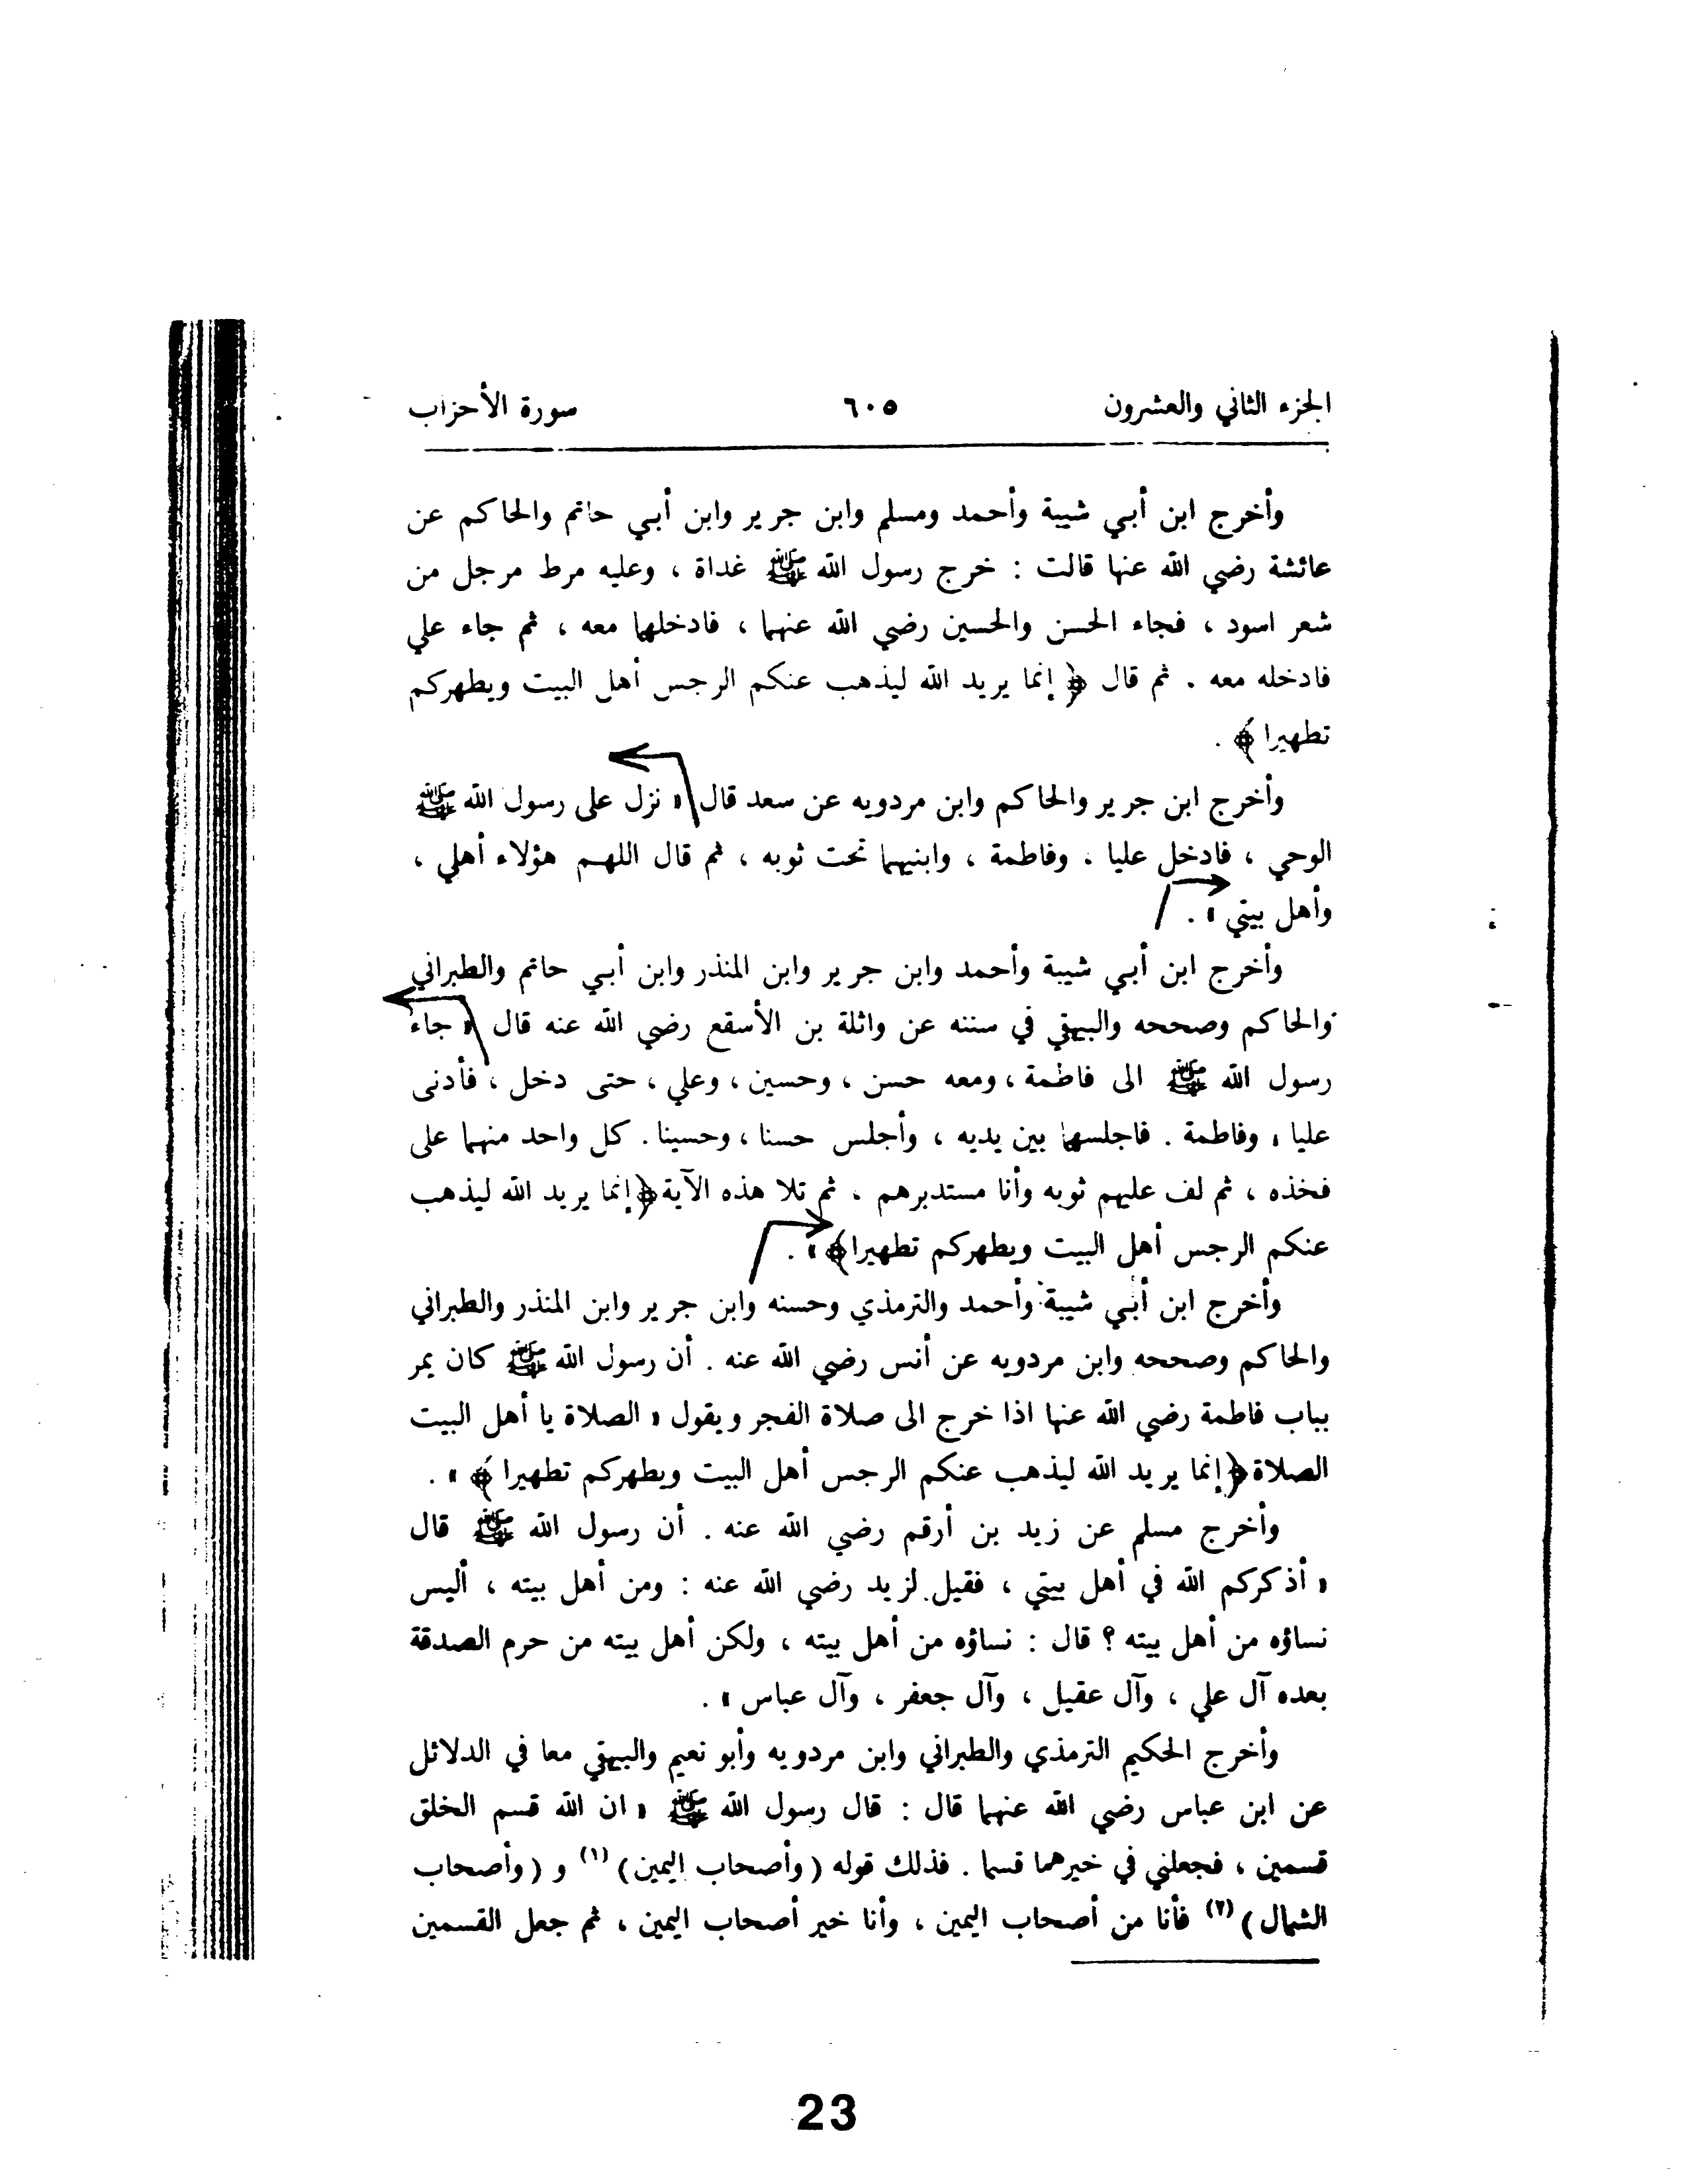 الجزء الثاني والعشرون ٦٠٥ سورة الأحزاب
وأخرج ابن أبي شيبة وأحمد ومسلم وابن جرير وابن أبي حاتم والحاكم عن
عائشة رضي الله عنها قالت : خرج رسول الله ﷺ غداة ، وعليه مرط مرجل من
شعر اسود ، فجاء الحسن والحسين رضي الله عنهما ، فادخلهما معه ، ثم جاء علي
فادخله معه . ثم قال ﴿ إنما يريد الله ليذهب عنكم الرجس أهل البيت ويطهركم
تطهيرا ﴾ .
وأخرج ابن جرير والحاكم وابن مردويه عن سعد قال « نزل على رسول الله ﷺ
الوحي ، فادخل عليا ، وفاطمة ، وابنيهما تحت ثوبه ، ثم قال اللهم هؤلاء أهلي ،
وأهل بيتي » .
وأخرج ابن أبي شيبة وأحمد وابن جرير وابن المنذر وابن أبي حاتم والطبراني
والحاكم وصححه والبيهقي في سننه عن واثلة بن الأسقع رضي الله عنه قال « جاء
رسول الله ﷺ الى فاطمة ، ومعه حسن ، وحسين ، وعلي ، حتى دخل ، فأدنى
عليا ، وفاطمة . فاجلسهما بين يديه ، وأجلس حسنا ، وحسينا . كل واحد منهما على
فخذه ، ثم لف عليهم ثوبه وأنا مستدبرهم ، ثم تلا هذه الآية ﴿ إنما يريد الله ليذهب
عنكم الرجس أهل البيت ويطهركم تطهيرا ﴾ » .
وأخرج ابن أبي شيبة وأحمد والترمذي وحسنه وابن جرير وابن المنذر والطبراني
والحاكم وصححه وابن مردويه عن أنس رضي الله عنه . أن رسول الله ﷺ كان يمر
بباب فاطمة رضي الله عنها اذا خرج الى صلاة الفجر ويقول « الصلاة يا أهل البيت
الصلاة ﴿ إنما يريد الله ليذهب عنكم الرجس أهل البيت ويطهركم تطهيرا ﴾ » .
وأخرج مسلم عن زيد بن أرقم رضي الله عنه . أن رسول الله ﷺ قال
« أذكركم الله في أهل بيتي ، فقيل لزيد رضي الله عنه : ومن أهل بيته ، أليس
نساؤه من أهل بيته ؟ قال : نساؤه من أهل بيته ، ولكن أهل بيته من حرم الصدقة
بعده آل علي ، وآل عقيل ، وآل جعفر ، وآل عباس » .
وأخرج الحكيم الترمذي والطبراني وابن مردويه وأبو نعيم والبيهقي معا في الدلائل
عن ابن عباس رضي الله عنهما قال : قال رسول الله ﷺ « ان الله قسم الخلق
قسمين ، فجعلني في خيرهما قسما . فذلك قوله ( وأصحاب اليمين ) (١) و ( وأصحاب
الشمال ) (٢) فأنا من أصحاب اليمين ، وأنا خير أصحاب اليمين ، ثم جعل القسمين
23